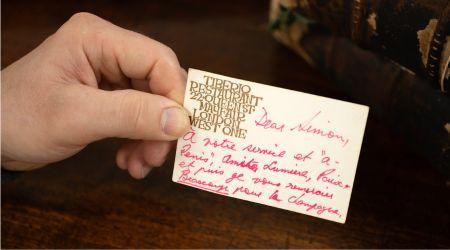 TIBERIO
RESTAURANT
22 QUEEN ST
MAYFAIR
LONDON
WEST ONE
Dear Simon,
A notre service et "à-
Paris"
et puis je vous remercier
Beaucoup pour la Champagne,